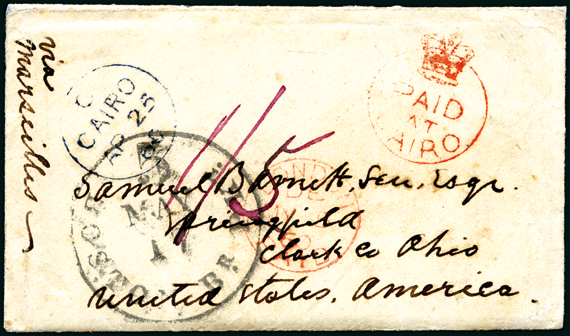 via
Marseilles
C
CAIRO
AP 25
PAID
AT
CAIRO
1/5
MAY
Samuel Barnett, Sen, Esqr.
Springfield
Clark Co Ohio
United States, America.
PAID